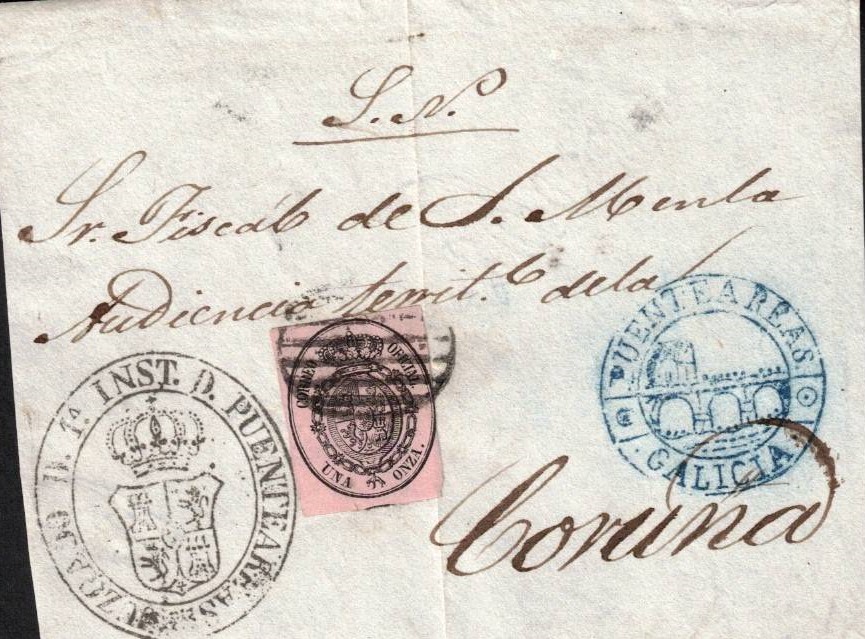 S. N.
Sr. Fiscál de S. M. en la
Audiencia territ.l de la
CORREO OFICIAL
UNA ONZA.
PUENTEAREAS
GALICIA
JUZGADO D. 1ª. INST. D. PUENTEAREAS
Coruña